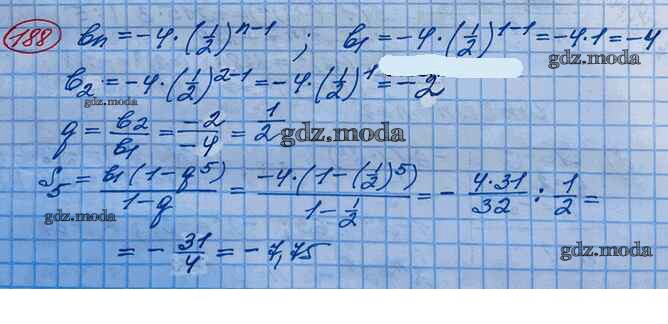 188 bn = -4 · (1/2)^(n-1) ; b1 = -4 · (1/2)^(1-1) = -4 · 1 = -4
b2 = -4 · (1/2)^(2-1) = -4 · (1/2)^1 = -2
gdz.moda
q = b2/b1 = -2/-4 = 1/2
gdz.moda
S5 = b1(1-q^5)/(1-q) = -4 · (1-(1/2)^5)/(1-1/2) = - 4·31/32 : 1/2 =
gdz.moda
gdz.moda
= - 31/4 = -7,75
gdz.moda
gdz.moda